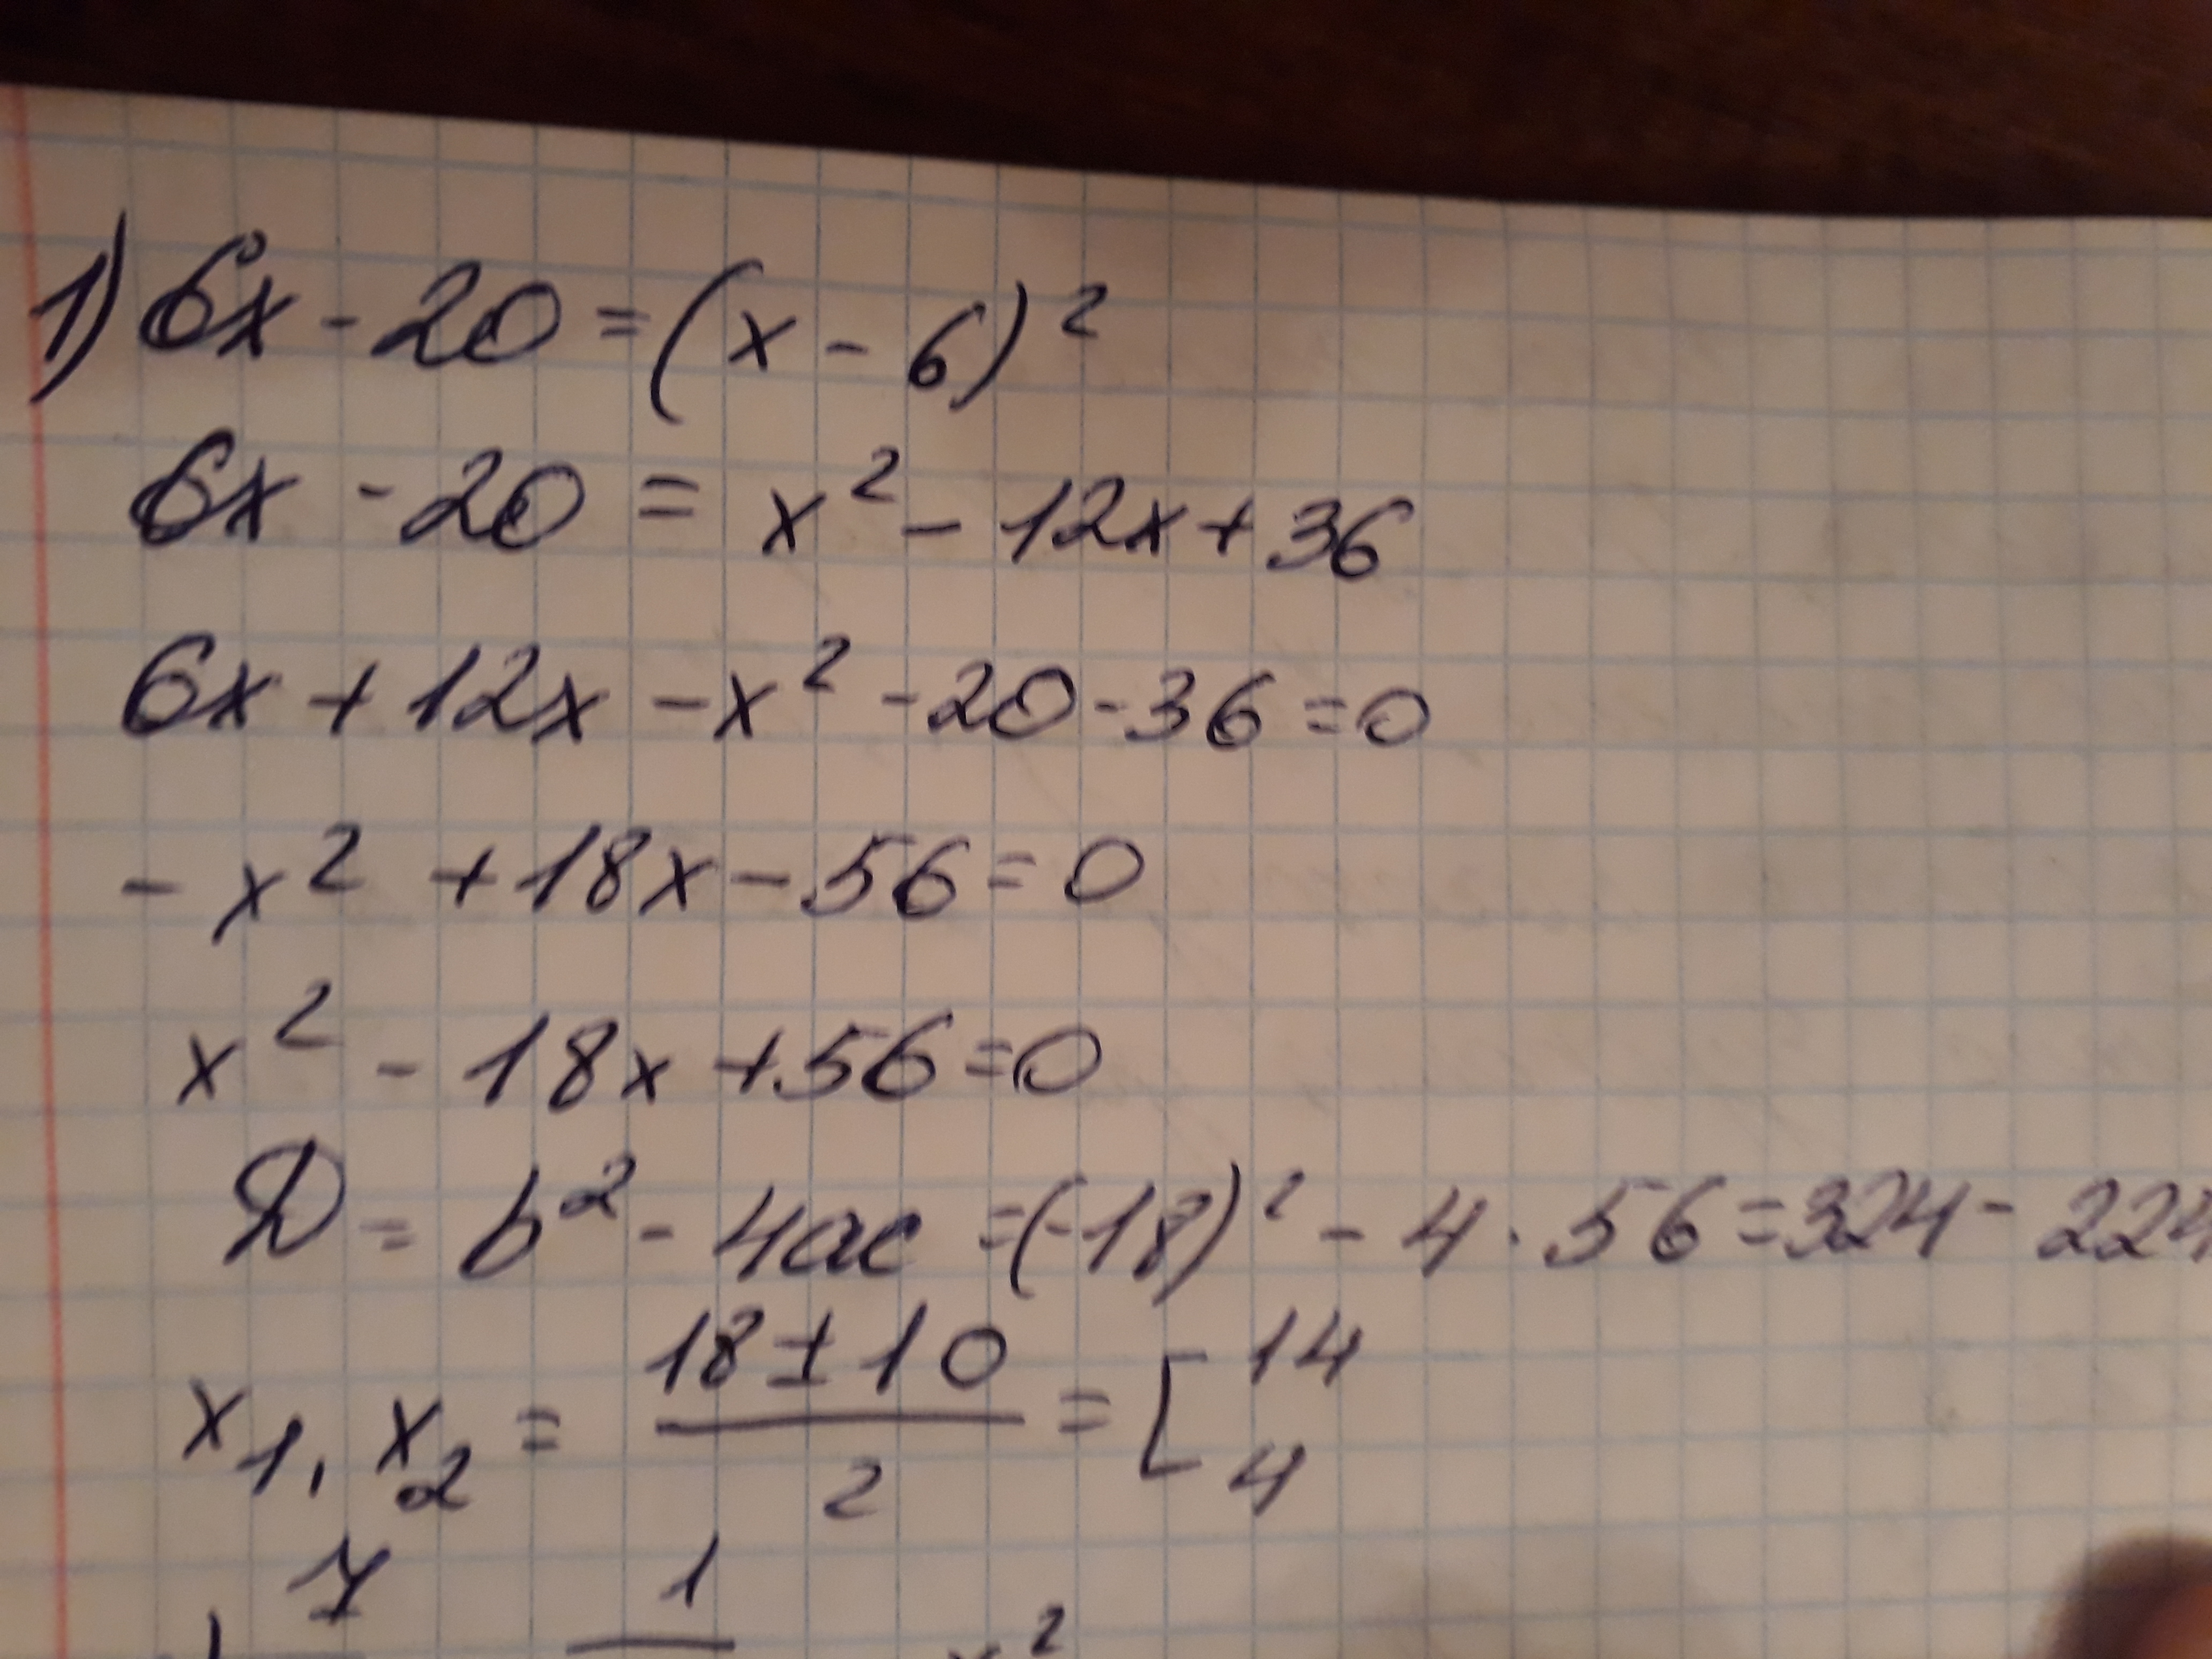 1) 6x - 20 = (x - 6)²
6x - 20 = x² - 12x + 36
6x + 12x - x² - 20 - 36 = 0
- x² + 18x - 56 = 0
x² - 18x + 56 = 0
D = b² - 4ac = (-18)² - 4 · 56 = 324 - 224
x₁, x₂ = (18 ± 10)/2 = [ 14 4
7 1 x²